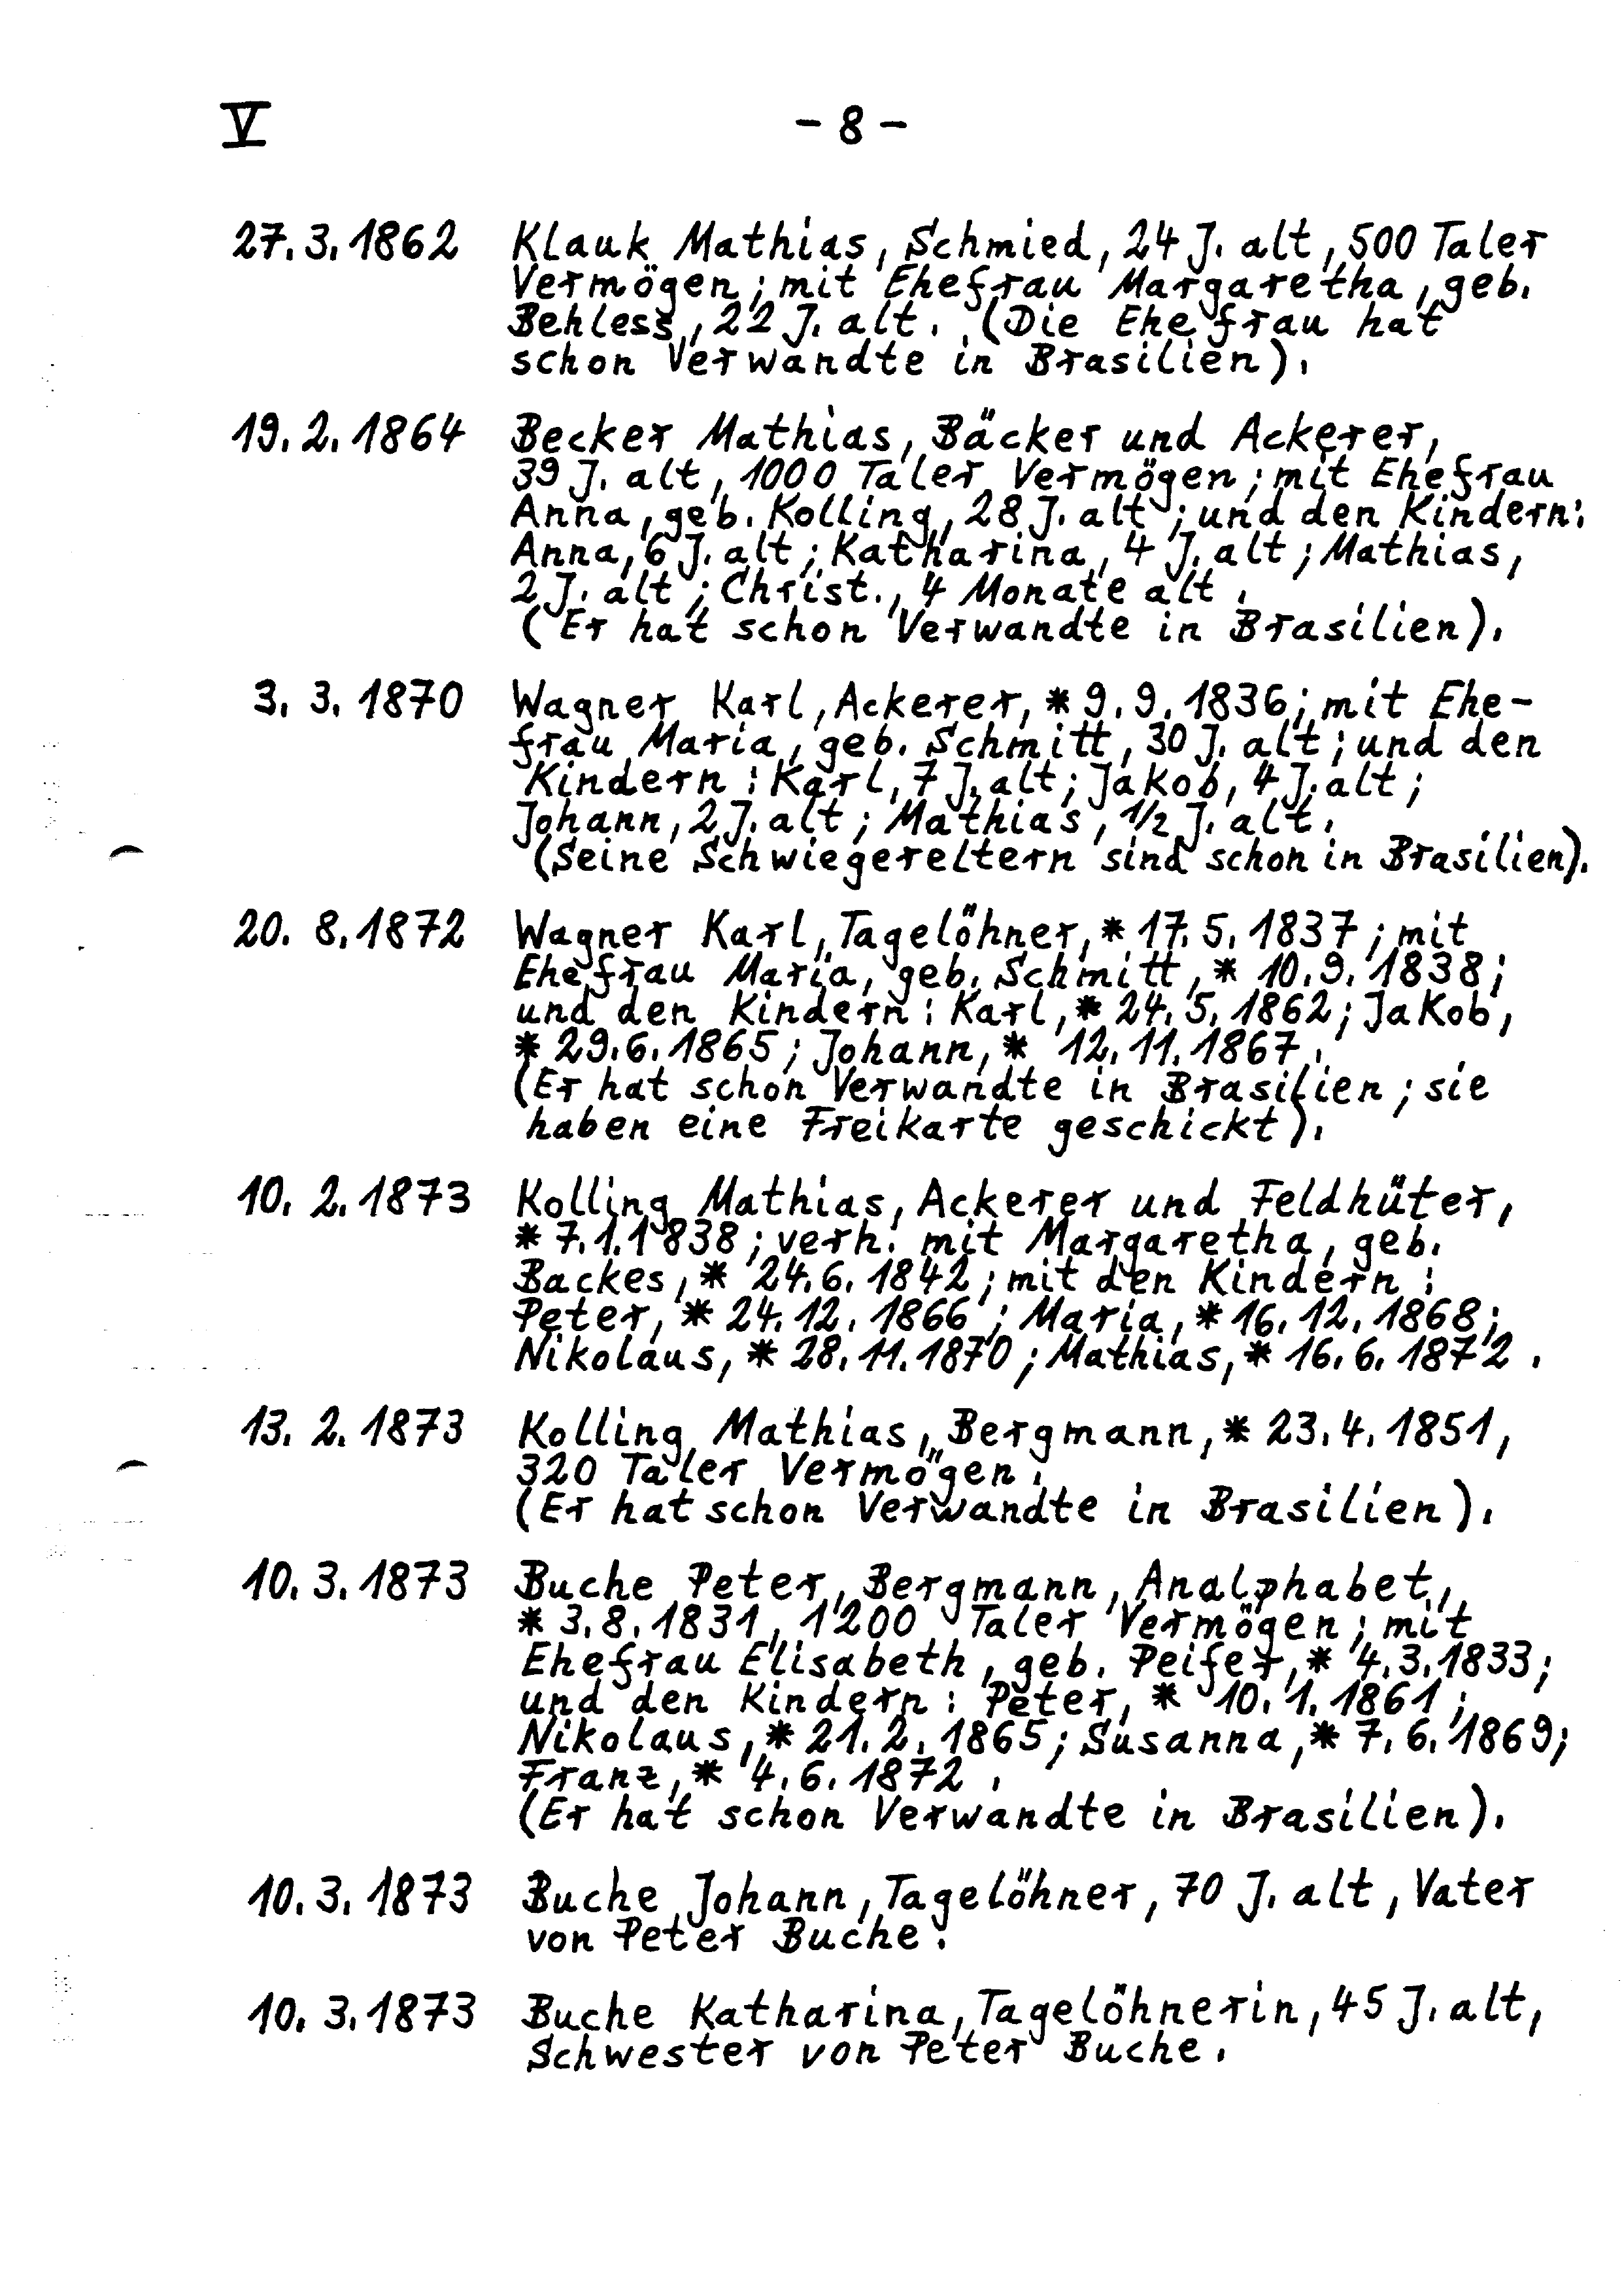 V - 8 -
27. 3. 1862 Klauk Mathias, Schmied, 24 J. alt, 500 Taler
Vermögen; mit Ehefrau Margaretha, geb.
Behless, 22 J. alt. (Die Ehefrau hat
schon Verwandte in Brasilien).
19. 2. 1864 Becker Mathias, Bäcker und Ackerer,
39 J. alt, 1000 Taler Vermögen; mit Ehefrau
Anna, geb. Kolling, 28 J. alt; und den Kindern:
Anna, 6 J. alt; Katharina, 4 J. alt; Mathias,
2 J. alt; Christ., 4 Monate alt.
(Er hat schon Verwandte in Brasilien).
3. 3. 1870 Wagner Karl, Ackerer, * 9. 9. 1836; mit Ehe-
frau Maria, geb. Schmitt, 30 J. alt; und den
Kindern: Karl, 7 J. alt; Jakob, 4 J. alt;
Johann, 2 J. alt; Mathias, 1/2 J. alt.
(Seine Schwiegereltern sind schon in Brasilien).
20. 8. 1872 Wagner Karl, Tagelöhner, * 17. 5. 1837; mit
Ehefrau Maria, geb. Schmitt, * 10. 9. 1838;
und den Kindern: Karl, * 24. 5. 1862; Jakob,
* 29. 6. 1865; Johann, * 12. 11. 1867.
(Er hat schon Verwandte in Brasilien; sie
haben eine Freikarte geschickt).
10. 2. 1873 Kolling Mathias, Ackerer und Feldhüter,
* 7. 1. 1838; verh. mit Margaretha, geb.
Backes, * 24. 6. 1842; mit den Kindern:
Peter, * 24. 12. 1866; Maria, * 16. 12. 1868;
Nikolaus, * 28. 11. 1870; Mathias, * 16. 6. 1872.
13. 2. 1873 Kolling Mathias, Bergmann, * 23. 4. 1851,
320 Taler Vermögen.
(Er hat schon Verwandte in Brasilien).
10. 3. 1873 Buche Peter, Bergmann, Analphabet,
* 3. 8. 1831, 1200 Taler Vermögen; mit
Ehefrau Elisabeth, geb. Peifer, * 4. 3. 1833;
und den Kindern: Peter, * 10. 1. 1861;
Nikolaus, * 21. 2. 1865; Susanna, * 7. 6. 1869;
Franz, * 4. 6. 1872.
(Er hat schon Verwandte in Brasilien).
10. 3. 1873 Buche Johann, Tagelöhner, 70 J. alt, Vater
von Peter Buche.
10. 3. 1873 Buche Katharina, Tagelöhnerin, 45 J. alt,
Schwester von Peter Buche.